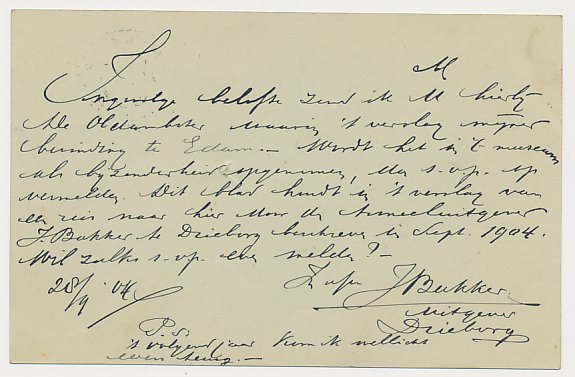 M
Ingevolge belofte zend ik U hierbij
de Oldambster waarin 't verslag mijner
bevinding te Edam. — Wordt het in 't museum
als bijzonderheid opgenomen, dan s.v.p. op
vermelden. Dit blad houdt in 't verslag van
een reis naar hier door de
J. Bakker te Drieborg beschreven in Sept. 1904.
Wil zulks s.v.p. even melden? —
28/9 '04
J Bakker
Uitgever
Drieborg
P.S.
't volgend jaar kom ik wellicht
eens terug. —